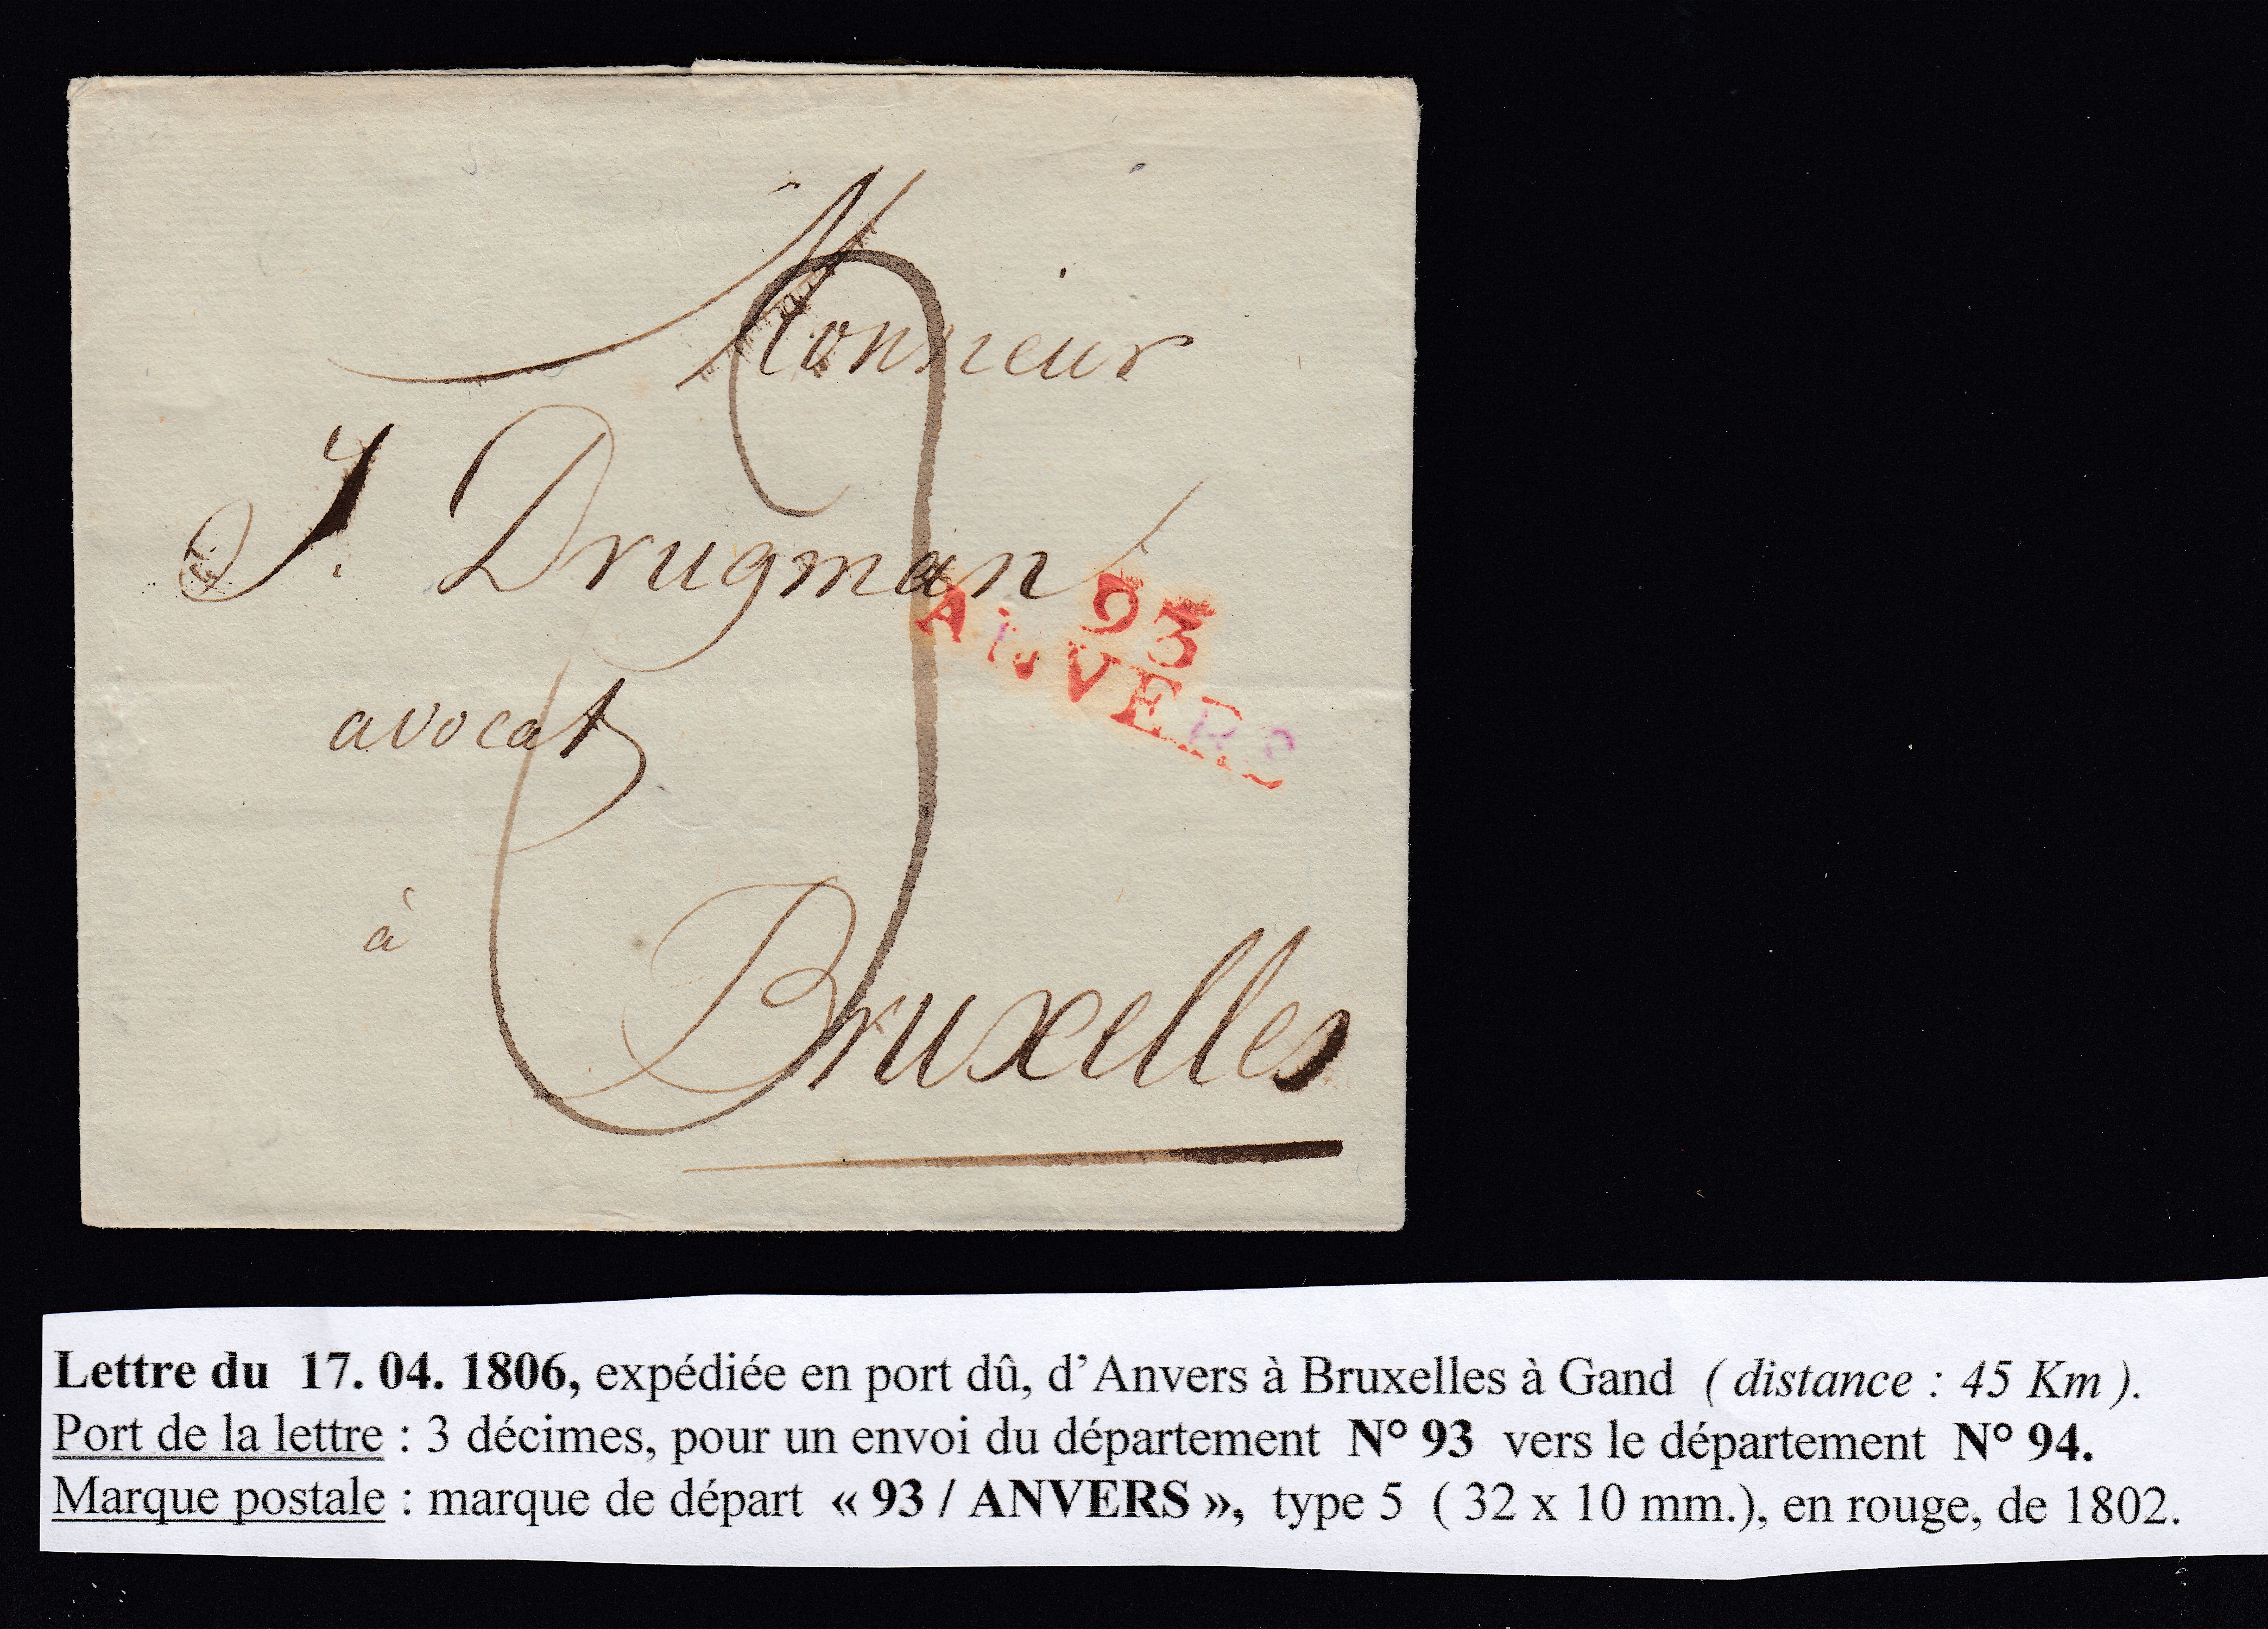 Monsieur
J. Drugman
93
ANVERS
avocat
à
Bruxelles
3
Lettre du 17. 04. 1806, expédiée en port dû, d'Anvers à Bruxelles à Gand ( distance : 45 Km ).
Port de la lettre : 3 décimes, pour un envoi du département N° 93 vers le département N° 94.
Marque postale : marque de départ « 93 / ANVERS », type 5 ( 32 x 10 mm.), en rouge, de 1802.